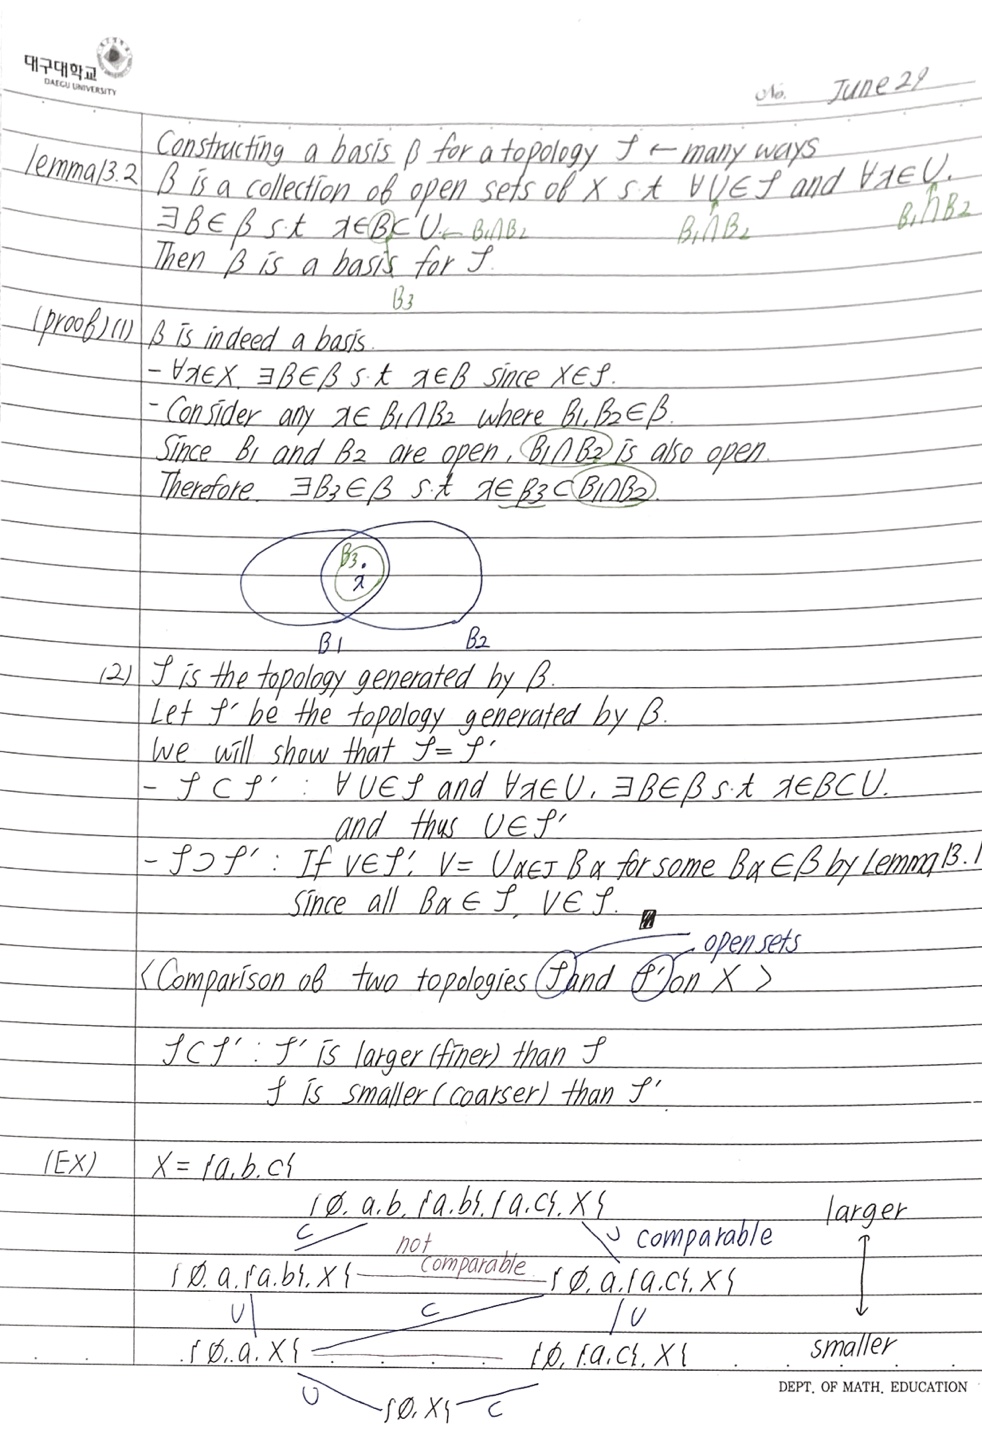 대구대학교
DAEGU UNIVERSITY
No. June 29
Constructing a basis β for a topology 𝒯 ← many ways
lemma13.2 β is a collection of open sets of X s.t ∀U∈𝒯 and ∀x∈U.
∃B∈β s.t x∈B⊂U. ← B₁∩B₂ B₁∩B₂ B₁∩B₂
Then β is a basis for 𝒯.
B₃
(proof) (1) β is indeed a basis.
- ∀x∈X, ∃B∈β s.t x∈B since X∈𝒯.
- Consider any x∈B₁∩B₂ where B₁,B₂∈β.
Since B₁ and B₂ are open, B₁∩B₂ is also open.
Therefore ∃B₃∈β s.t x∈B₃⊂B₁∩B₂.
B₃
x
B1 B2
(2) 𝒯 is the topology generated by β.
Let 𝒯′ be the topology generated by β.
We will show that 𝒯=𝒯′
- 𝒯⊂𝒯′ : ∀U∈𝒯 and ∀x∈U, ∃B∈β s.t x∈B⊂U.
and thus U∈𝒯′
- 𝒯⊃𝒯′ : If V∈𝒯′, V= ∪α∈J Bα for some Bα∈β by Lemma13.1
Since all Bα∈𝒯, V∈𝒯.
open sets
<Comparison of two topologies 𝒯 and 𝒯′ on X>
𝒯⊂𝒯′ : 𝒯′ is larger(finer) than 𝒯
𝒯 is smaller(coarser) than 𝒯′
(EX) X={a.b.c}
{∅. a.b. {a.b}. {a.c}. X} larger
⊂ not comparable ∪ comparable
{∅. a. {a.b}. X} {∅. a. {a.c}. X}
∪ ⊂ ∪
{∅. a. X} {∅. {a.c}. X} smaller
∪ {∅. X} ⊂
DEPT. OF MATH. EDUCATION